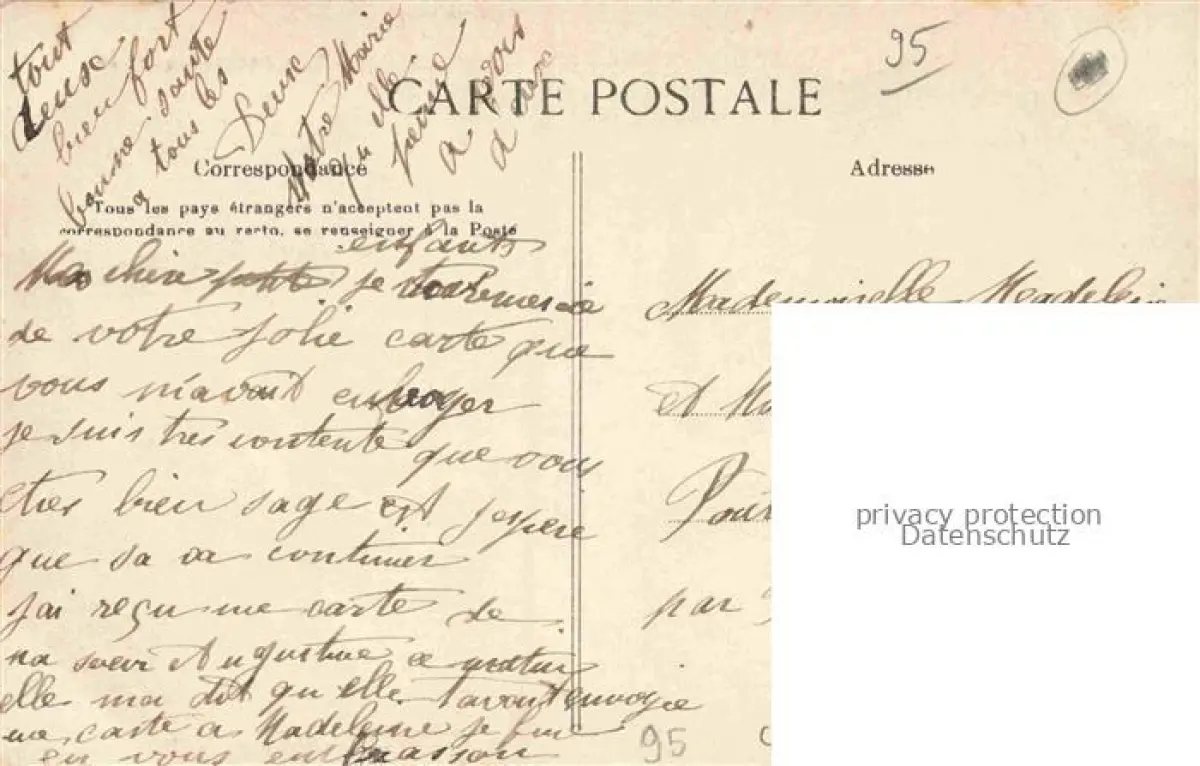 CARTE POSTALE
95
Correspondance
Tous les pays étrangers n'acceptent pas la
correspondance au recto, se renseigner à la Poste
Adresse
Ma chère petite enfants je vous remercie
de votre jolie carte que
vous m'avait envoyer
je suis tres contente que vous
etres bien sage et j'espere
que sa va continuer
j'ai reçu une carte de
ma sœur Augustine ce matin
elle ma dit qu'elle avait envoyie
une carte a Madeleine je fini
en vous embrasson
tout
deux
bien fort
bonne sante
a tous les
Deux
Votre Marie
qu elle
pense
a vous
deux
Mademoiselle Madelein
et
par
privacy protection
Datenschutz
95